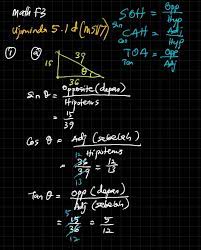 Math F3
Ujiminda 5.1 d (MS87)
SOH = Opp
Sin Hyp
CAH = Adj
Cos Hyp
TOA = Opp
Tan Adj
① ⓐ
15 39
θ
36
Sin θ = Opposite (depan)
Hipotenus
= 15
39
Cos θ = Adj (sebelah)
Hipotenus
= 12 36 = 12
39 13
13
Tan θ = Opp (depan)
Adj (sebelah)
= 5 15 = 5
36 12
12